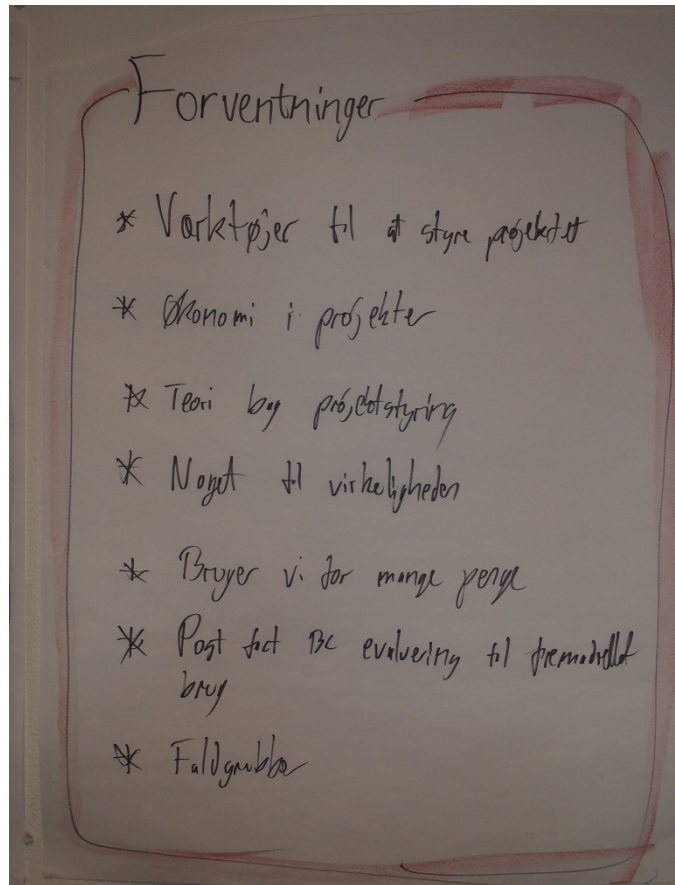 Forventninger
* Værktøjer til at styre projektet
* Økonomi i projekter
* Teori bag projektstyring
* Noget til virkeligheden
* Bruger vi for mange penge
* Post fact BC evaluering til fremadrettet
brug
* Faldgrubber